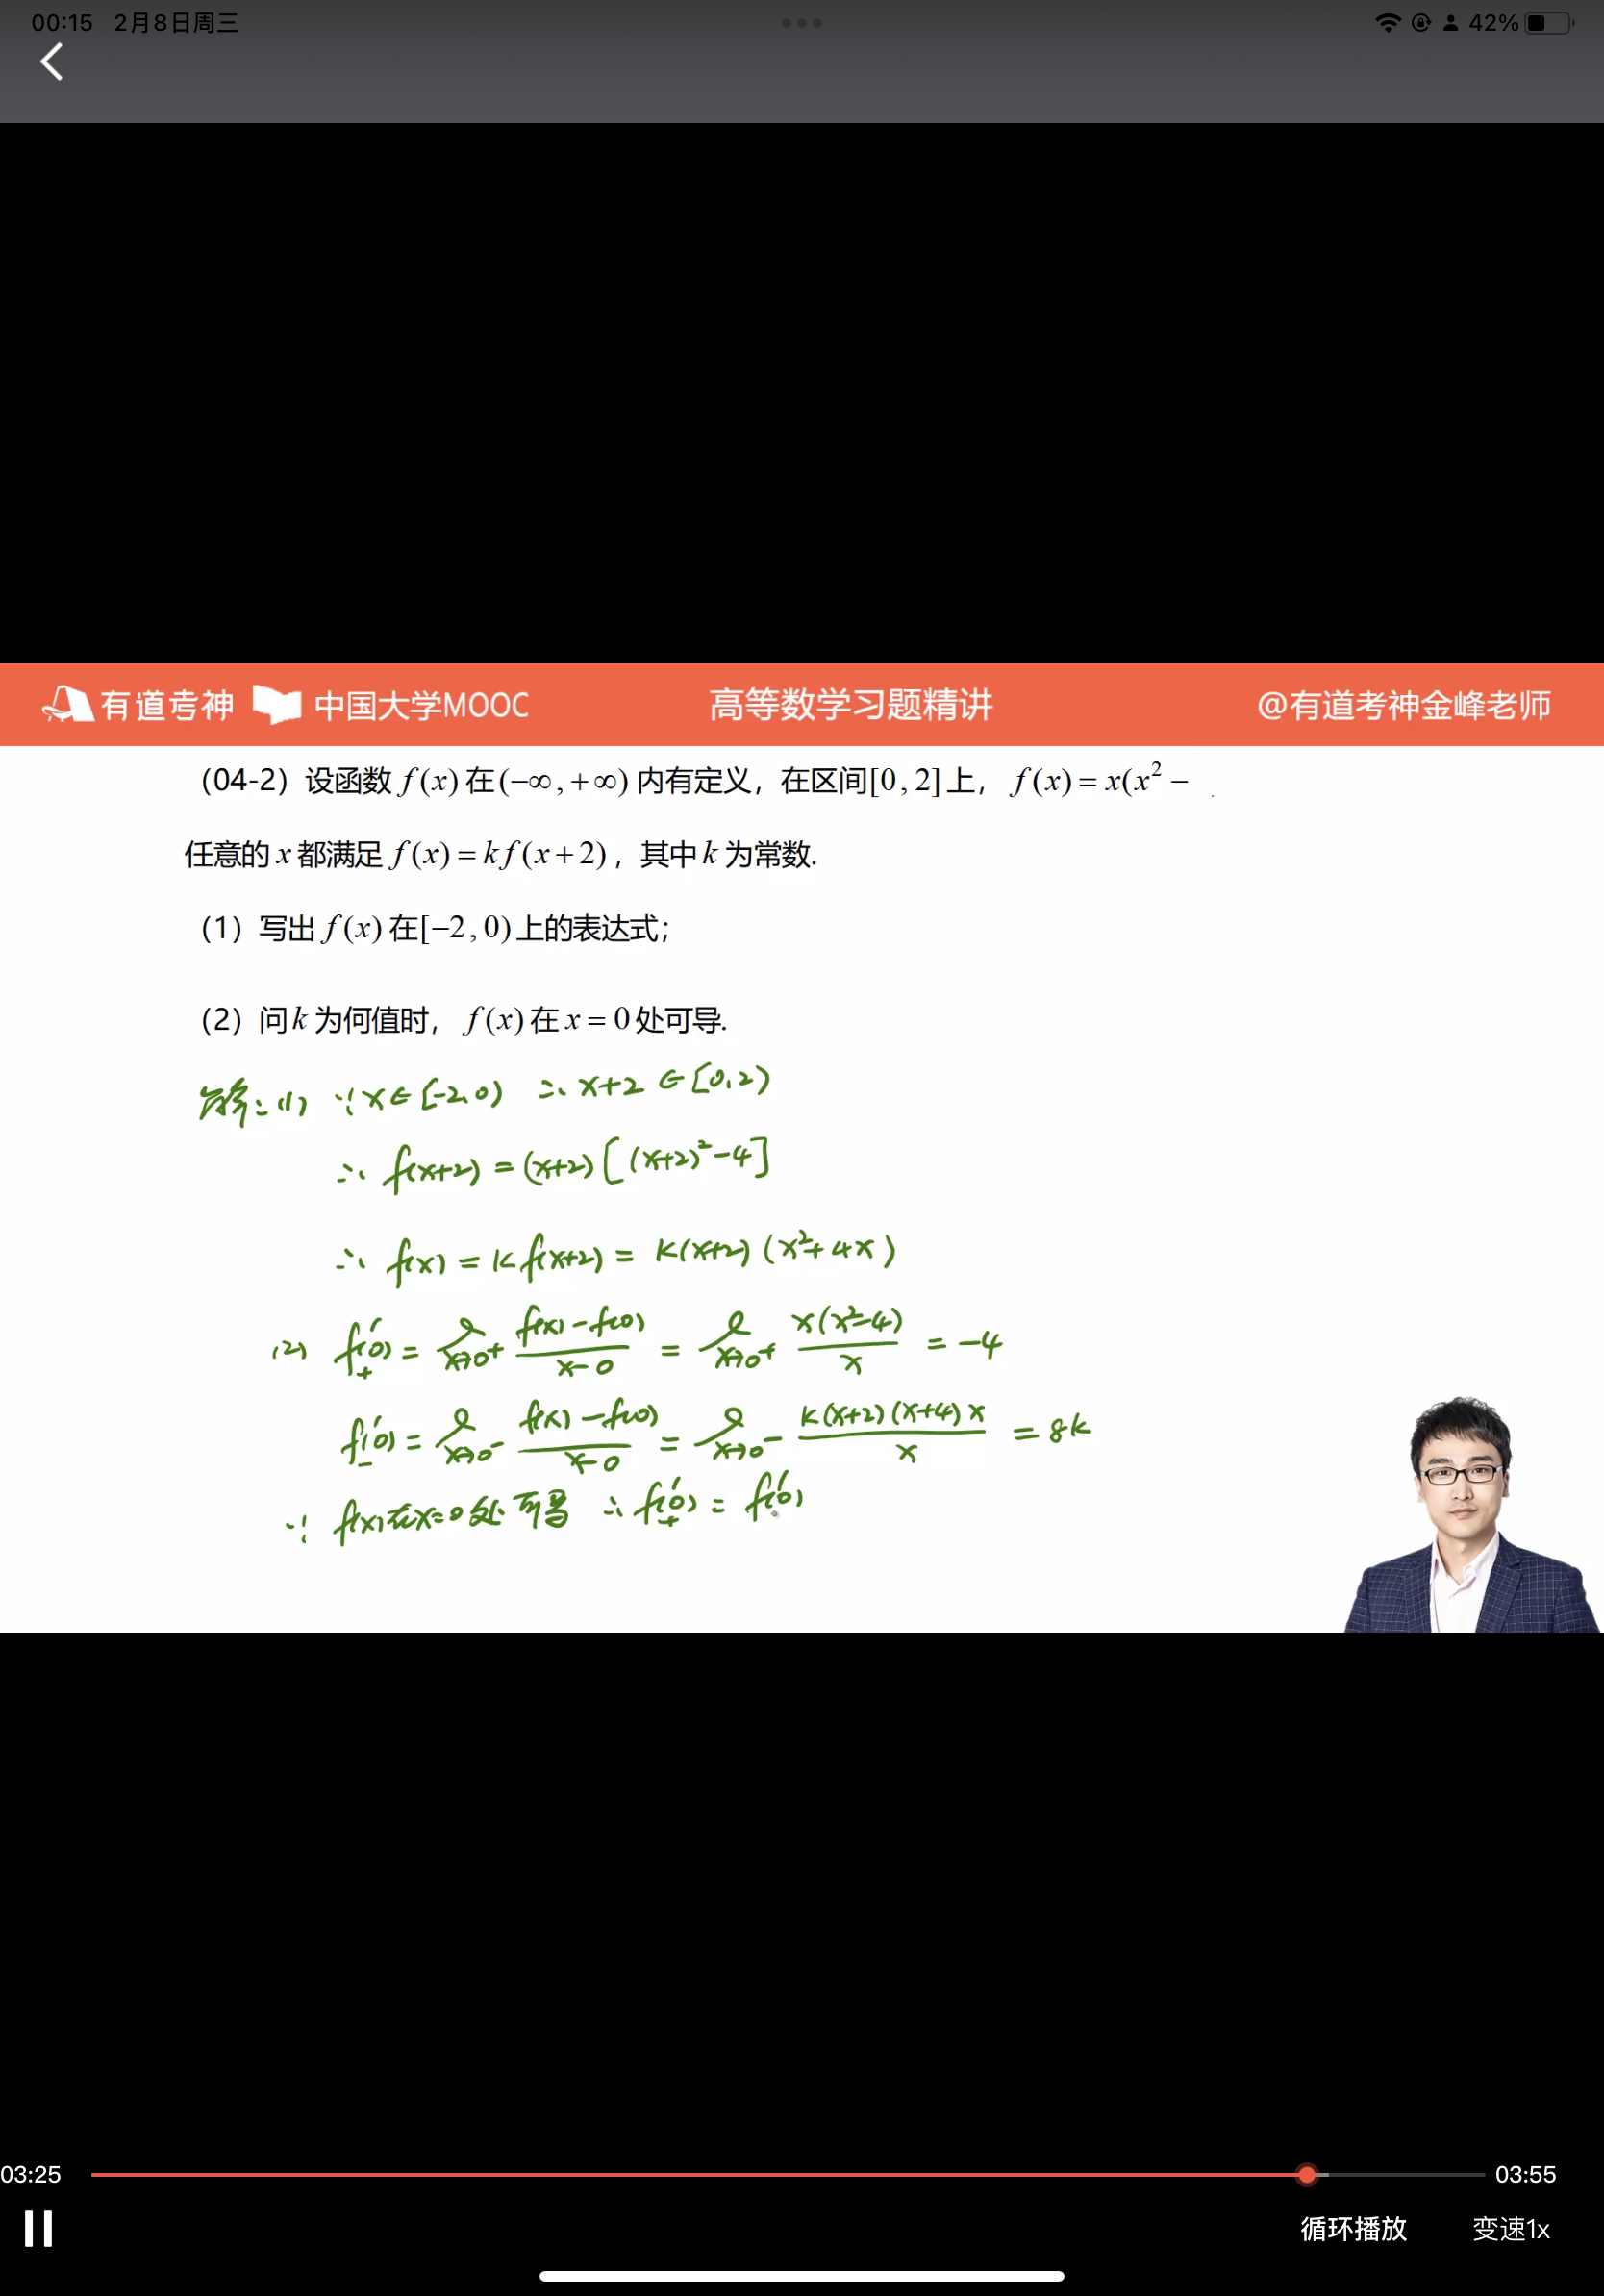 00:15 2月8日周三 42%
有道考神 中国大学MOOC 高等数学习题精讲 @有道考神金峰老师
（04-2）设函数 f(x) 在 (−∞, +∞) 内有定义，在区间[0, 2]上， f(x) = x(x² −
任意的 x 都满足 f(x) = kf(x+2)，其中 k 为常数.
（1）写出 f(x) 在[−2, 0)上的表达式；
（2）问 k 为何值时， f(x) 在 x = 0 处可导.
解:(1) ∵x∈[-2,0) ∴x+2∈[0,2)
∴ f(x+2) = (x+2)[(x+2)²-4]
∴ f(x) = kf(x+2) = k(x+2)(x²+4x)
(2) f'₊(0) = lim x→0⁺ f(x)-f(0) / x-0 = lim x→0⁺ x(x²-4) / x = -4
f'₋(0) = lim x→0⁻ f(x)-f(0) / x-0 = lim x→0⁻ k(x+2)(x+4)x / x = 8k
∵ f(x)在x=0处可导 ∴ f'₊(0) = f'(0)
03:25 03:55
循环播放 变速1x